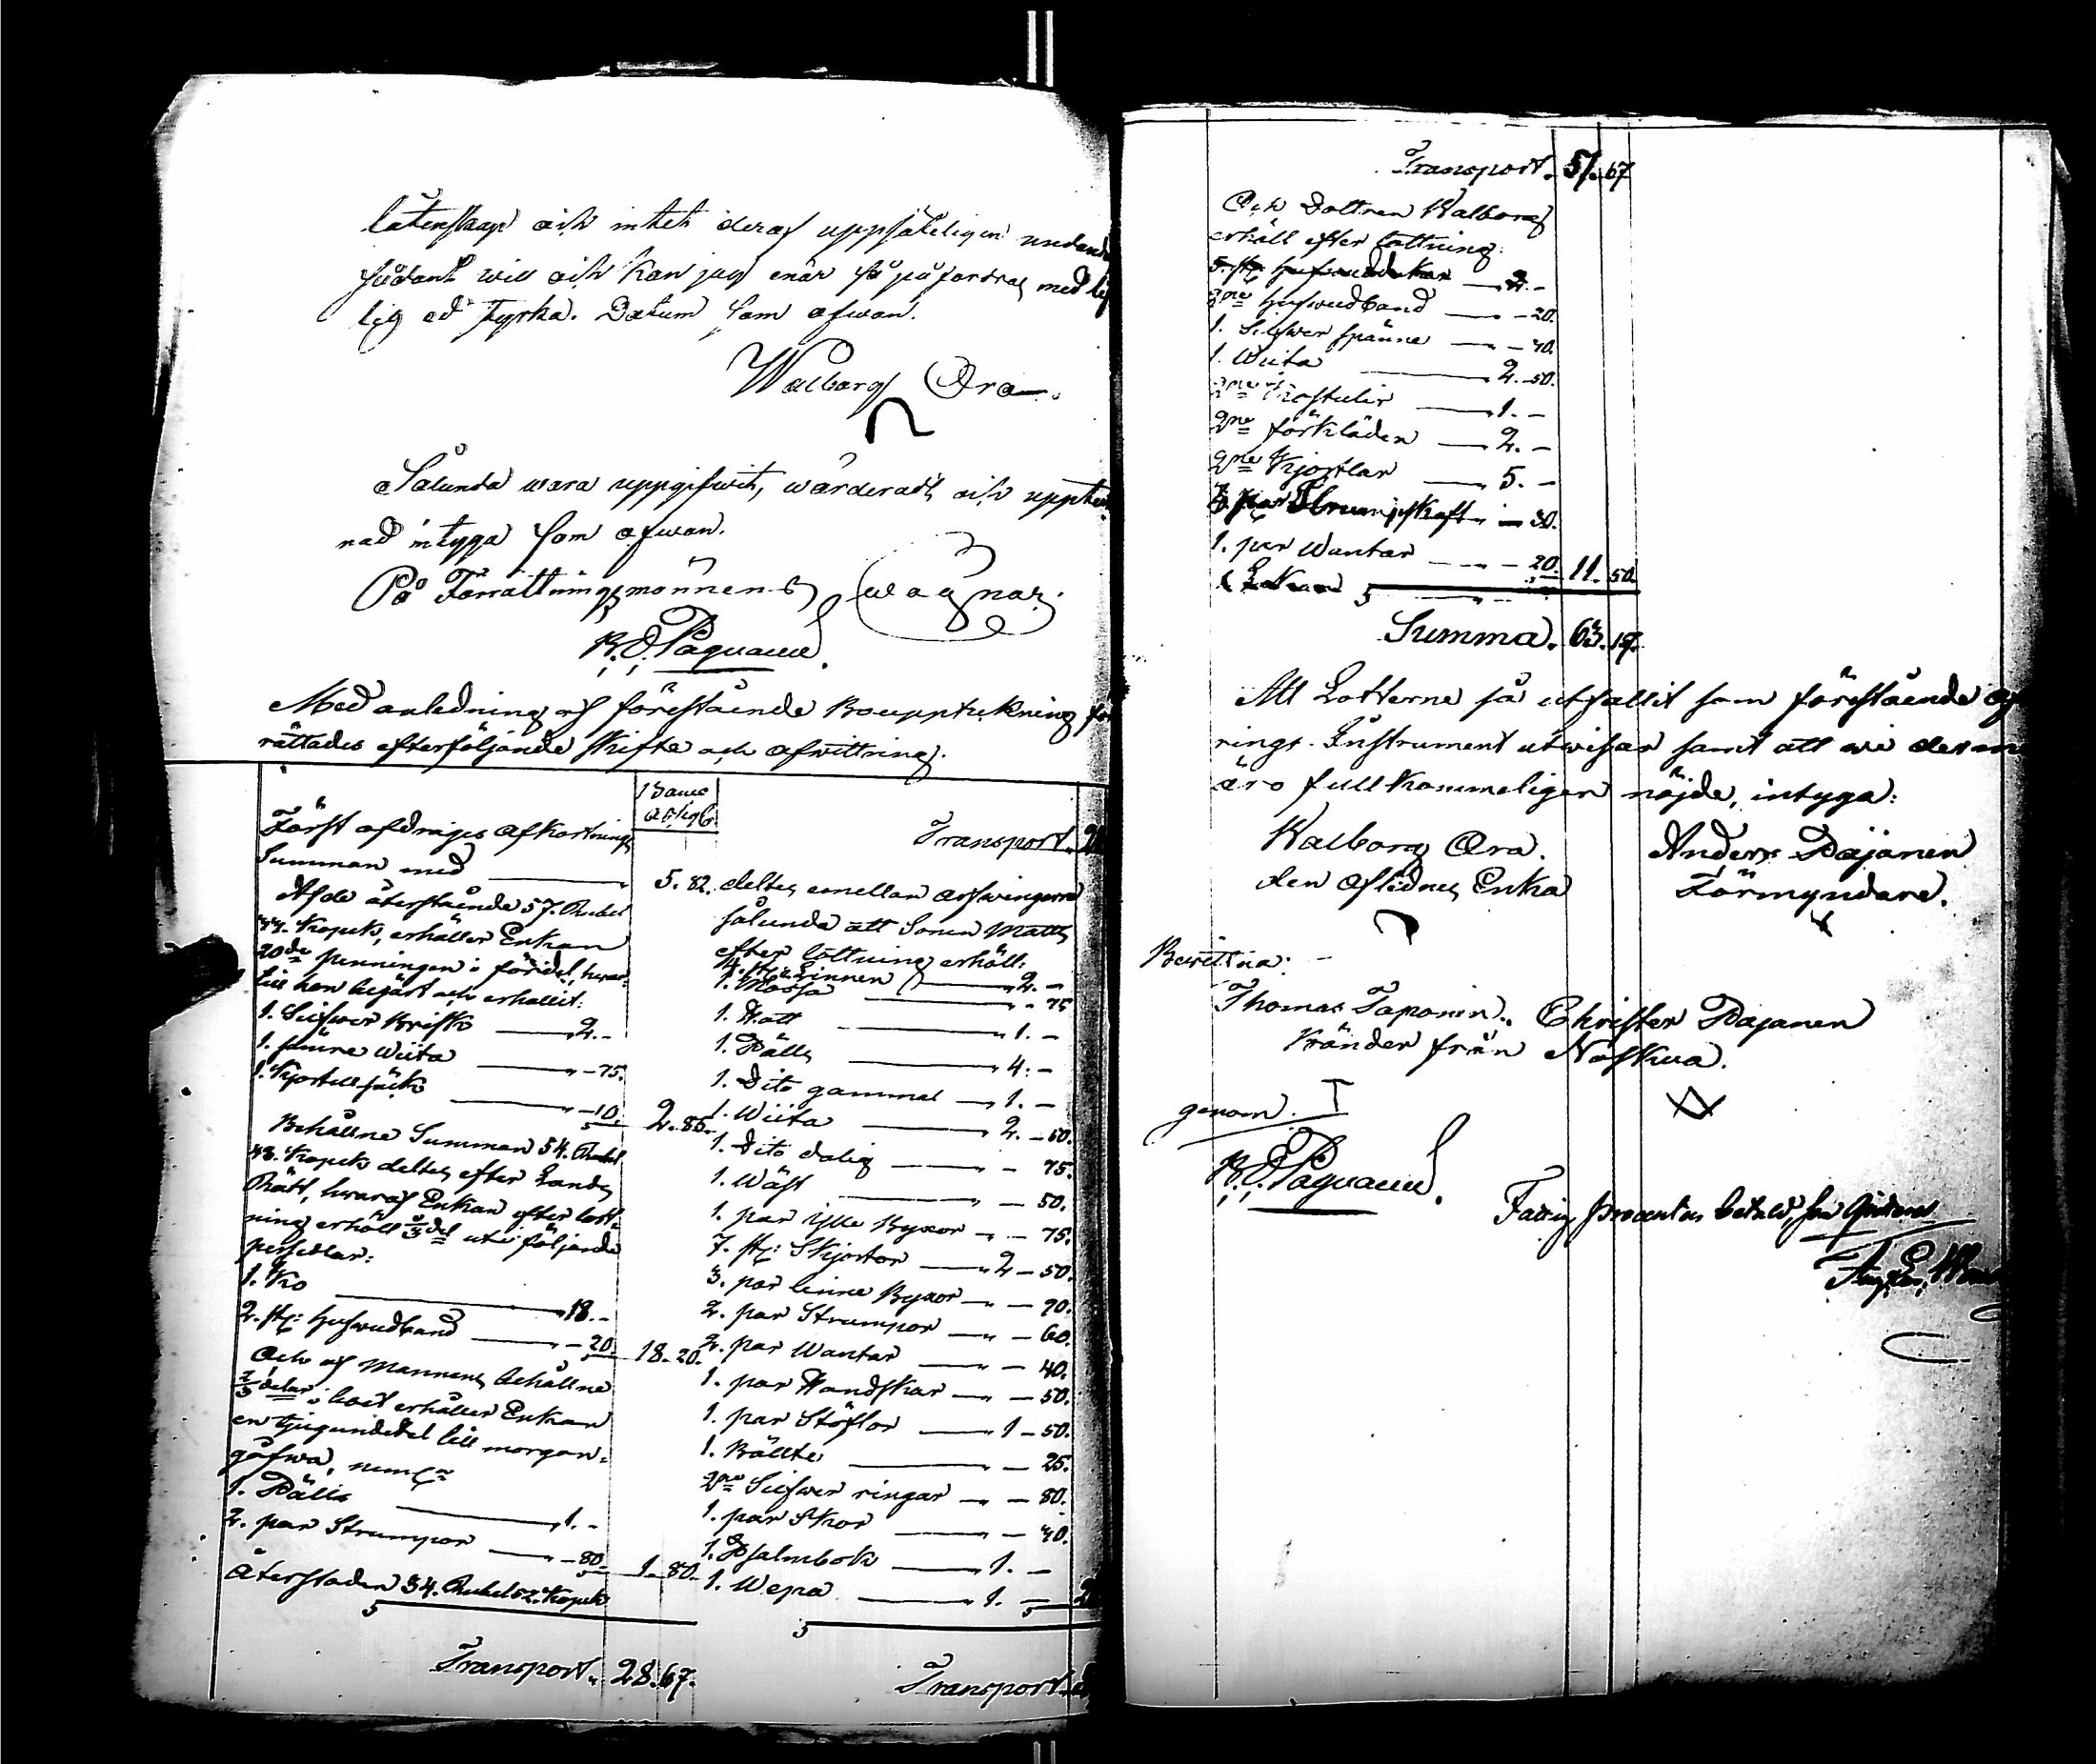 låtenskap och intet deraf uppsåteligen undand
sådant will och kan jag enär så påfordras med lif
lig ed styrka. Datum som ofwan.
Walborg Ora.
Sålunda wara uppgifwit, wärderadt och upptek
nad intyga som ofwan.
På Förrättningsmännens wägnar
Med anledning af förestående Bouppteckning för
rättades efterföljande skifte och afwittring.
Först afdrages afkortnings
Summan med 5. 82.
Af de återstående 57. Rubel
Kopek, erhåller Enkan
20de penningen i fördel, hwar-
till hon begärt och erhållit:
1. Silfwer Brisk 2. -
1. sämre Wiita - 75.
1. Kjortell säck - 10. 2. 85.
Behållne Summan 54. Rubel
Kopek deltes efter Lands
Rätt, hwaraf Enkan efter lott-
ning erhöll 1/3 del uti följande
persedlar:
1. Ko 18. -
2. st: hufwudband - 20. 18. 20.
Och af Mannens behållne
2/3 delar i boet erhåller Enkan
en tjugundedel till morgon-
gåfwa, neml:
1. Pälls 1. -
2. par Strumpor - 80. 1. 80.
Återstoden 34. Rubel 52. Kopek
Transport. 28. 67.
Banco
Transport. 28
deltes emellan arfwingarne
sålunda att Sonen Matts
efter lottning erhöll:
4. st: Linnen 2. -
1. Mössa - 75
1. Hatt 1. -
1. Pälls 4. -
1. Dito gammal 1. -
1. Wiita 2. - 50.
1. Dito dålig - 75.
1. Wäst - 50.
1. par ylle Byxor - 75.
7. st: Skjortor 2 - 50.
3. par linne Byxor - 90.
2. par Strumpor - 60.
2. par Wantar - 40.
1. par Handskar - 50.
1. par Stöflor 1 - 50.
1. Bällte - 25.
2ne Silfwer ringar - 80.
1. par Skor - 40.
1. Psalmbok 1. -
1. Wepa 1. -
Transport.
Transport. 51. 67
Och Dottren Walborg
erhöll efter lottning:
5. st: hufwuddukar 2. -
2ne hufwudband - 20.
1. Silfwer spänne - 40.
1. Wiita 2. - 50.
1. -
2ne förkläden 2. -
2ne Kjortlar 5. -
par Strumpskaft - 30.
1. par Wantar - 20. 11. 50.
Summa. 63. 17.
Att Lotterne så utfallit som förestående af
rings Instrument utwisar samt att wi dermed
äro fullkommeligen nöjde, intyga:
Walborg Ora. Anders Pajanen
den aflidnes Enka Förmyndare.
Bewittna:
Thomas Taponen. Christer Pajanen
Bönder från Noskua.
genom.
Fattig procenten betald,